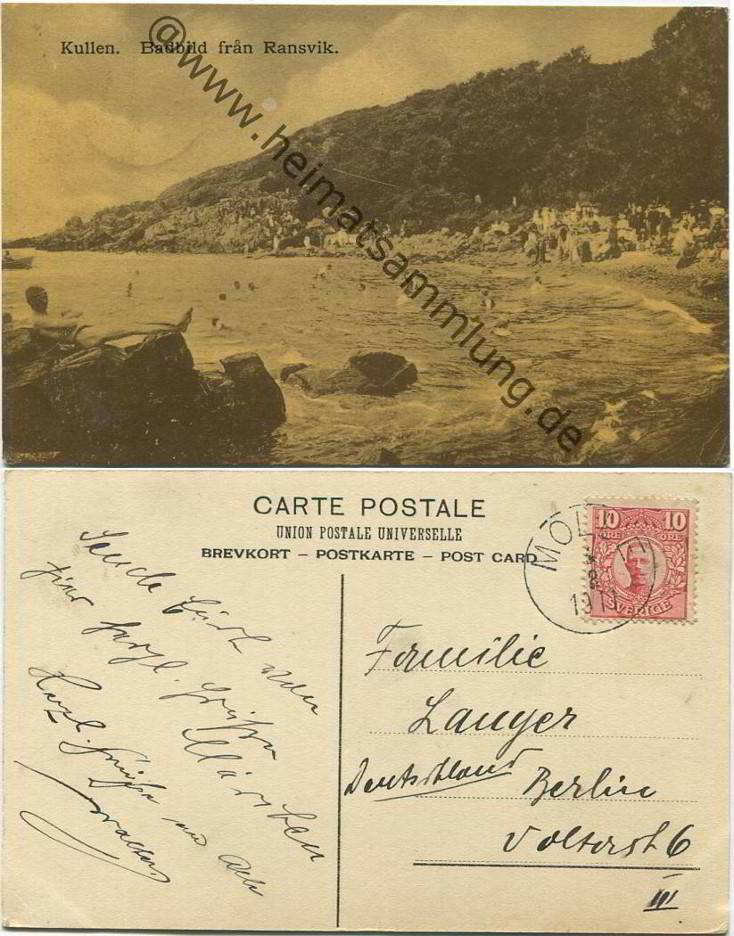 Kullen. Badbild från Ransvik.
@www.heimatsammlung.de
CARTE POSTALE
UNION POSTALE UNIVERSELLE
BREVKORT – POSTKARTE – POST CARD
MÖL
10 10
SVERIGE
Sende Euch von
hier herzl. Grüße
Herzl. Grüße
Familie
Langer
Deutschland Berlin
Volterst 6
III